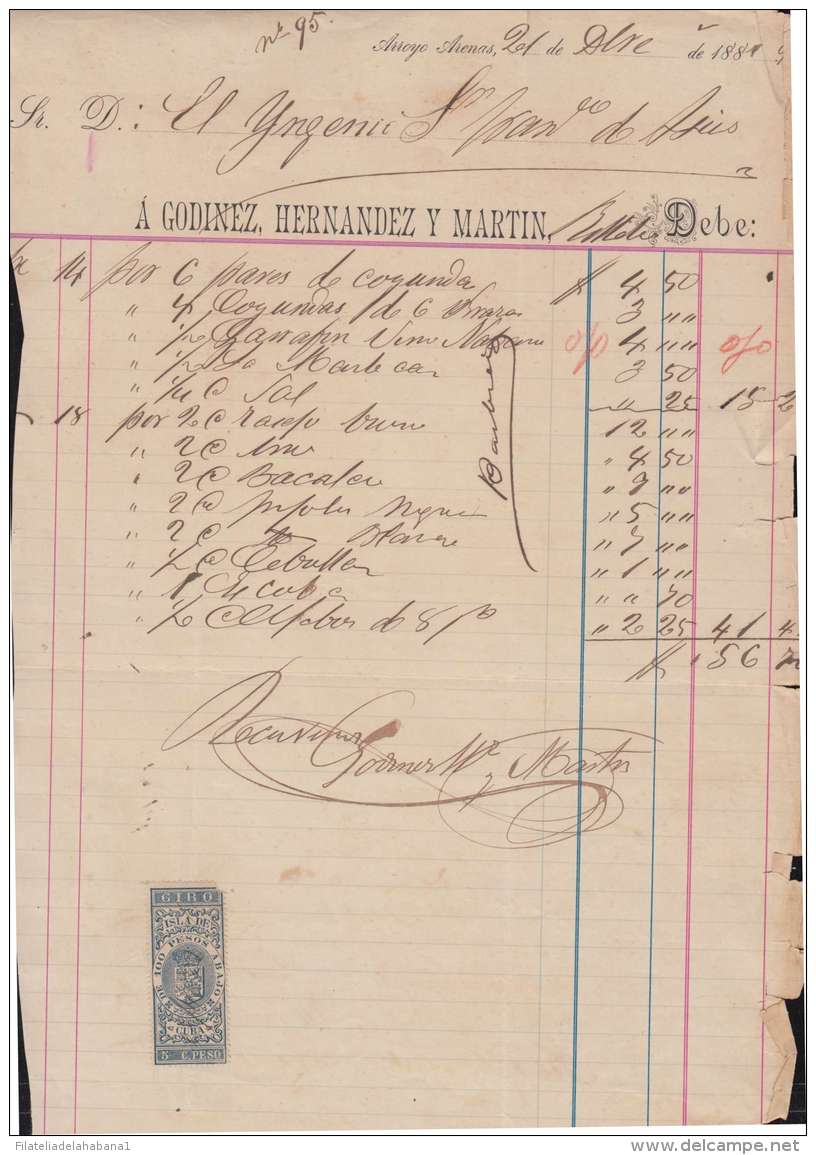 nº 95.
Arroyo Arenas, 21 de Dbre de 188
Sr. D.: El Yngenio Sn Franco de Asis
Á GODINEZ, HERNANDEZ Y MARTIN, Debe:
14 por 6 pares de coyunda $ 4 50
" 4 Coyundas de 6 brazas 3 ""
" 1/2 Garrafon Vino Navarro 4 ""
" 1/2 Manteca 3 50
" Sal " 25 15 2
18 por 2 @ Tasajo 12 ""
" 2 @ " 4 50
" 2 @ Bacalao " 7 ""
" 2 @ frijoles negros " 5 ""
" 2 @ " 7 ""
" 1/2 @ Cebollas " 1 ""
" 1 Escoba " " 70
" 1/2 de 8 " 2 25 41 4
$ 56 7
Recivimos
Godinez Hz y Martin
GIRO
ISLA DE
DE 100 PESOS ABAJO
CUBA
5 C. PESO
Filateliadelahabana1
delcampe.net